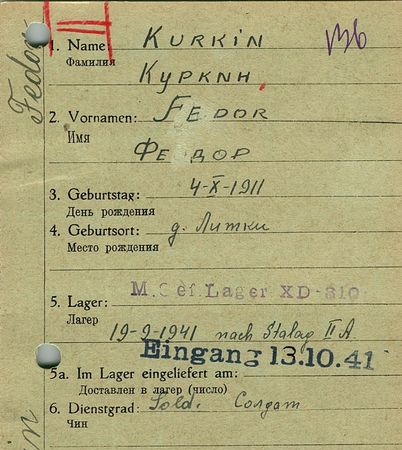 1. Name: KURKIN
Фамилия
КУРКИН
2. Vornamen: FEDOR
Имя
ФЕДОР
3. Geburtstag: 4-X-1911
День рождения
4. Geburtsort: д. Литки
Место рождения
M. Gef. Lager XD-310
5. Lager:
Лагер
19-9-1941 nach Stalag II A
Eingang 13.10.41
5a. Im Lager eingeliefert am:
Доставлен в лагер (число)
6. Dienstgrad: Sold. Солдат
Чин
Fedor